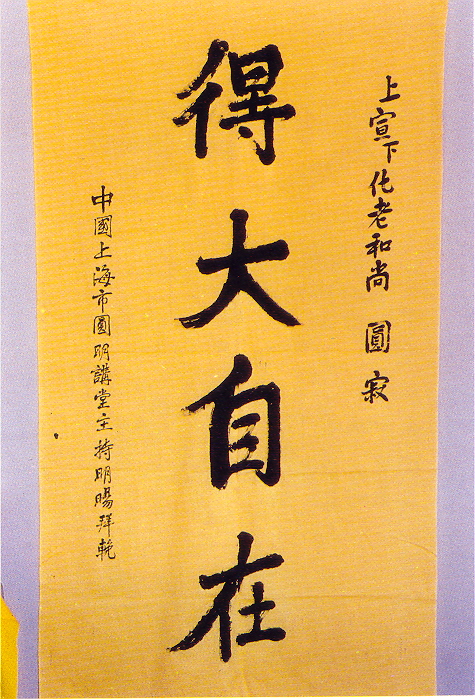 上宣下化老和尚 圓寂
得大自在
中國上海市圓明講堂主持明暘拜輓